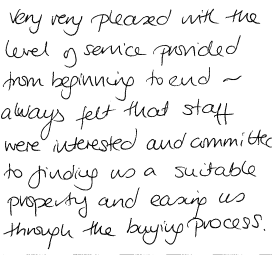 Very very pleased with the
level of service provided
from beginning to end ~
always felt that staff
were interested and committed
to finding us a suitable
property and easing us
through the buying process.